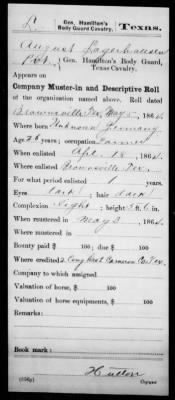 L. Gen. Hamilton's Body Guard Cavalry, Texas.
August Lagerhausen
Pvt., Gen. Hamilton's Body Guard, Texas Cavalry.
Appears on
Company Muster-in and Descriptive Roll
of the organization named above. Roll dated
Brownsville, Tex, May 5, 1864.
Where born Unknown Germany
Age 26 years; occupation Farmer
When enlisted Apr. 18, 1864.
Where enlisted Brownsville, Tex.
For what period enlisted 1 years.
Eyes dark; hair dark
Complexion light; height 5 ft. 6 in.
When mustered in May 5, 1864.
Where mustered in
Bounty paid $ 100; due $ 100
Where credited 2 Cong Dist Cameron Co Tex.
Company to which assigned
Valuation of horse, $ 100
Valuation of horse equipments, $ 100
Remarks:
Book mark:
Hutton
(356g) Copyist